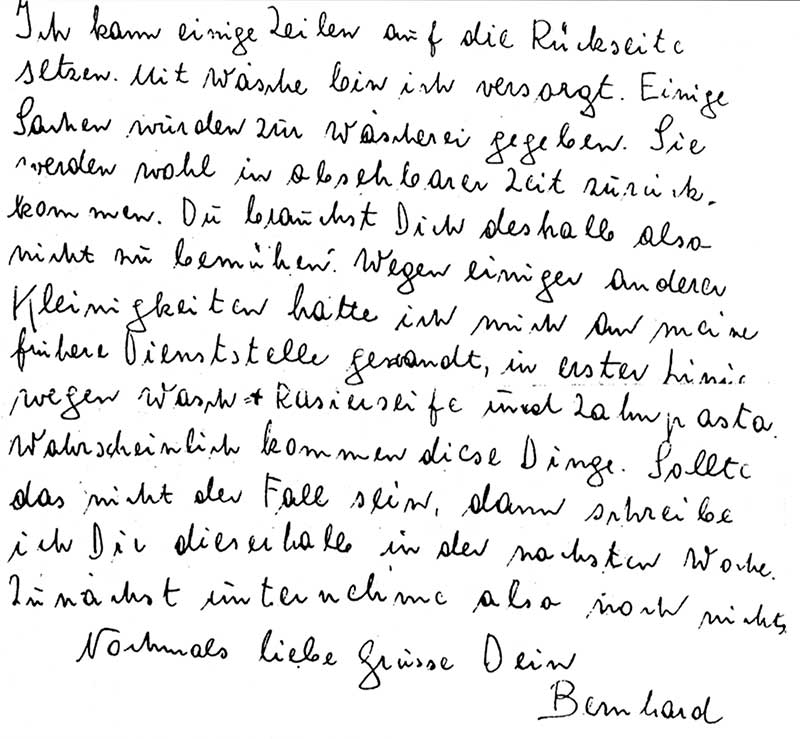 Ich kann einige Zeilen auf die Rückseite
setzen. Mit Wäsche bin ich versorgt. Einige
Sachen wurden zur Wäscherei gegeben. Sie
werden wohl in absehbarer Zeit zurück-
kommen. Du brauchst Dich deshalb also
nicht zu bemühen. Wegen einiger anderer
Kleinigkeiten hatte ich mich an meine
frühere Dienststelle gewandt, in erster Linie
wegen Wasch + Rasierseife und Zahnpasta.
Wahrscheinlich kommen diese Dinge. Sollte
das nicht der Fall sein, dann schreibe
ich Dir dieserhalb in der nächsten Woche.
Zunächst unternehme also noch nichts
Nochmals liebe Grüsse Dein
Bernhard